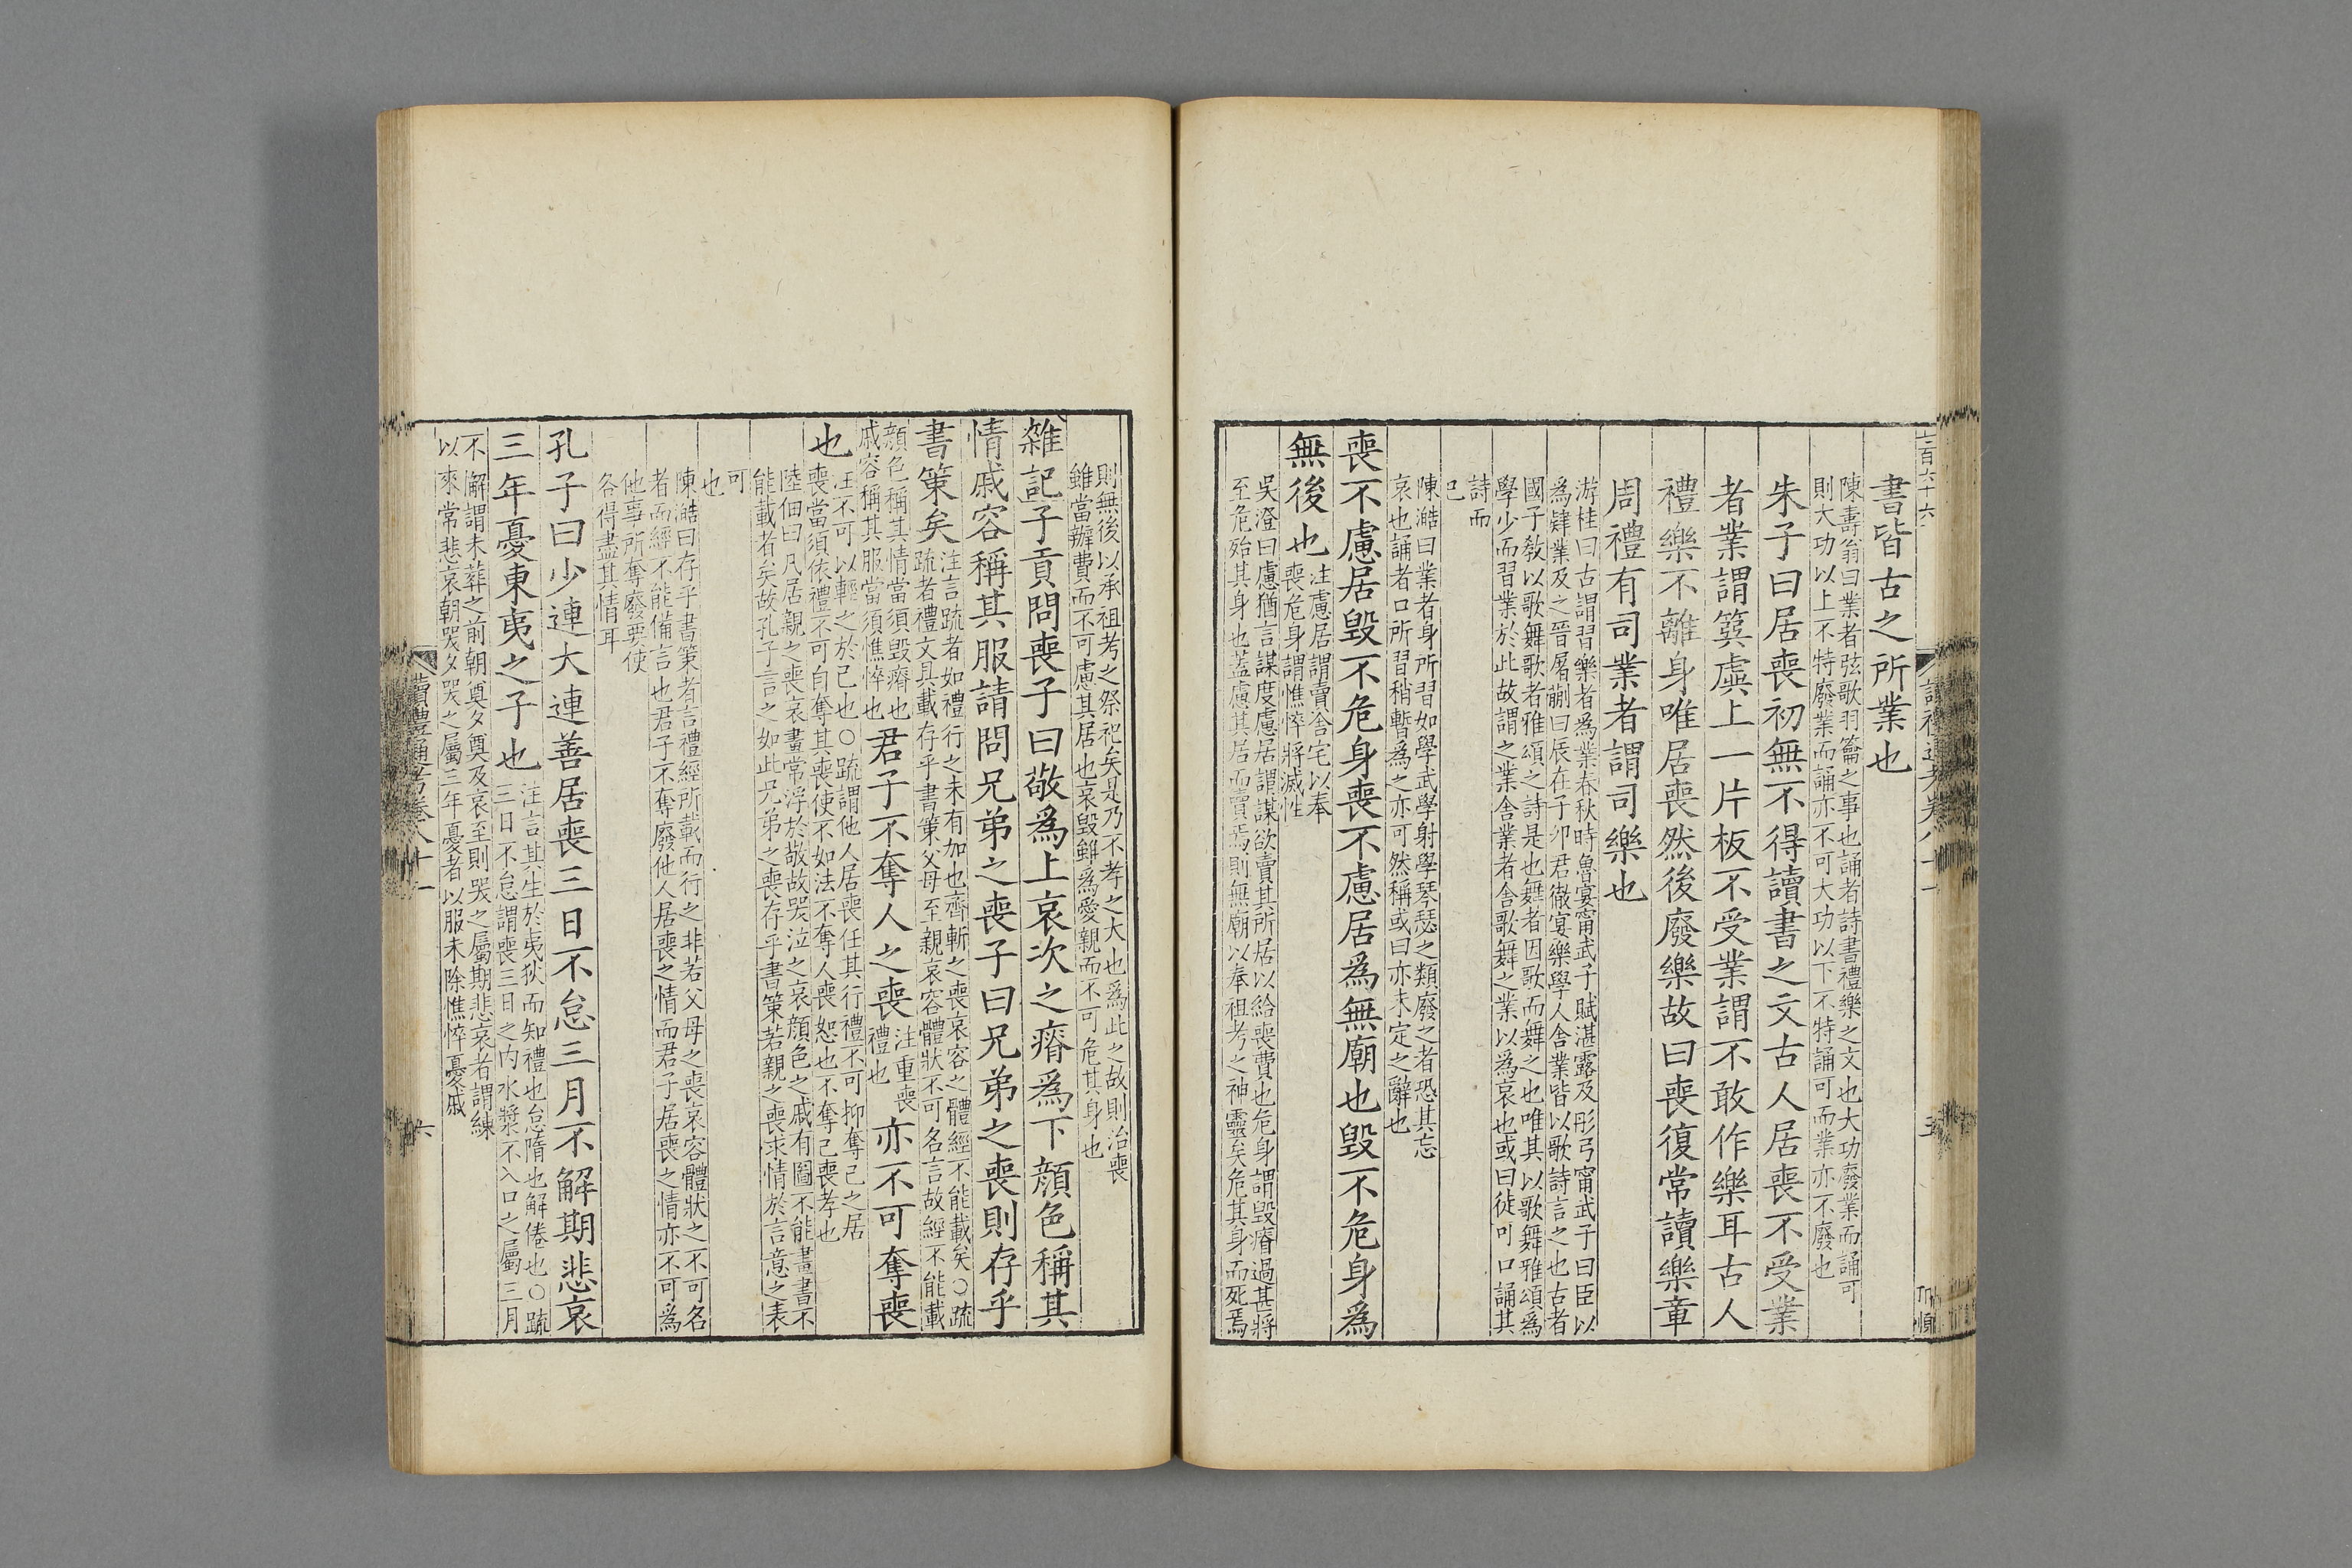 書皆古之所業也
陳壽翁曰業者弦歌羽籥之事也誦者詩書禮樂之文也大功廢業而誦可
則大功以上不特廢業而誦亦不可大功以下不特誦可而業亦不廢也
朱子曰居喪初無不得讀書之文古人居喪不受業
者業謂簨虡上一片板不受業謂不敢作樂耳古人
禮樂不離身唯居喪然後廢樂故曰喪復常讀樂章
周禮有司業者謂司樂也
游桂曰古謂習樂者為業春秋時魯宴甯武子賦湛露及彤弓甯武子曰臣以
為肄業及之晉屠蒯曰辰在子卯君徹宴樂學人舍業皆以歌詩言之也古者
國子教以歌舞歌者雅頌之詩是也舞者因歌而舞之也唯其以歌舞雅頌為
學少而習業於此故謂之業舍業者舍歌舞之業以為哀也或曰徒可口誦其
詩而
已
陳澔曰業者身所習如學武學射學琴瑟之類廢之者恐其忘
哀也誦者口所習稍暫為之亦可然稱或曰亦未定之辭也
喪不慮居毀不危身喪不慮居為無廟也毀不危身為
無後也
注慮居謂賣舍宅以奉
喪危身謂憔悴將滅性
吳澄曰慮猶言謀度慮居謂謀欲賣其所居以給喪費也危身謂毀瘠過甚將
至危殆其身也蓋慮其居而賣焉則無廟以奉祖考之神靈矣危其身而死焉
則無後以承祖考之祭祀矣是乃不孝之大也為此之故則治喪
雖當辦費而不可慮其居也哀毀雖為愛親而不可危其身也
雜記子貢問喪子曰敬為上哀次之瘠為下顏色稱其
情戚容稱其服請問兄弟之喪子曰兄弟之喪則存乎
書策矣
注言疏者如禮行之未有加也齊斬之喪哀容之體經不能載矣○疏
疏者禮文具載存乎書策父母至親哀容體狀不可名言故經不能載
顏色稱其情當須毀瘠也
戚容稱其服當須憔悴也
君子不奪人之喪
注重喪
禮也
亦不可奪喪
也
注不可以輕之於己也○疏謂他人居喪任其行禮不可抑奪己之居
喪當須依禮不可自奪其喪使不如法不奪人喪恕也不奪己喪孝也
陸佃曰凡居親之喪哀畫常浮於敬故哭泣之哀顏色之戚有圖不能畫書不
能載者矣故孔子言之如此兄弟之喪存乎書策若親之喪求情於言意之表
可
也
陳澔曰存乎書策者言禮經所載而行之非若父母之喪哀容體狀之不可名
者而經不能備言也君子不奪廢他人居喪之情而君子居喪之情亦不可為
他事所奪廢要使
各得盡其情耳
孔子曰少連大連善居喪三日不怠三月不解期悲哀
三年憂東夷之子也
注言其生於夷狄而知禮也怠惰也解倦也○疏
三日不怠謂喪三日之內水漿不入口之屬三月
不解謂未葬之前朝奠夕奠及哀至則哭之屬期悲哀者謂練
以來常悲哀朝哭夕哭之屬三年憂者以服未除憔悴憂戚
讀禮通考卷八十一
六